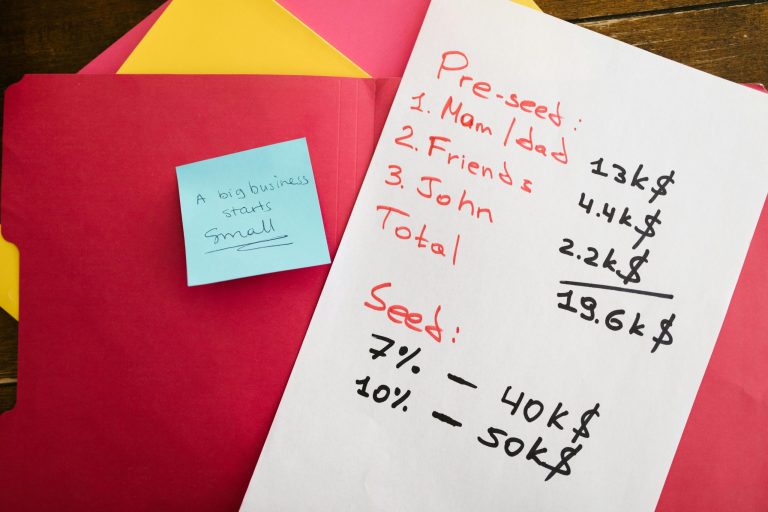 A big business
starts
small
Pre-seed:
1. Mam/dad 13k$
2. Friends 4.4k$
3. John 2.2k$
Total 19.6k$
Seed:
7% - 40k$
10% - 50k$